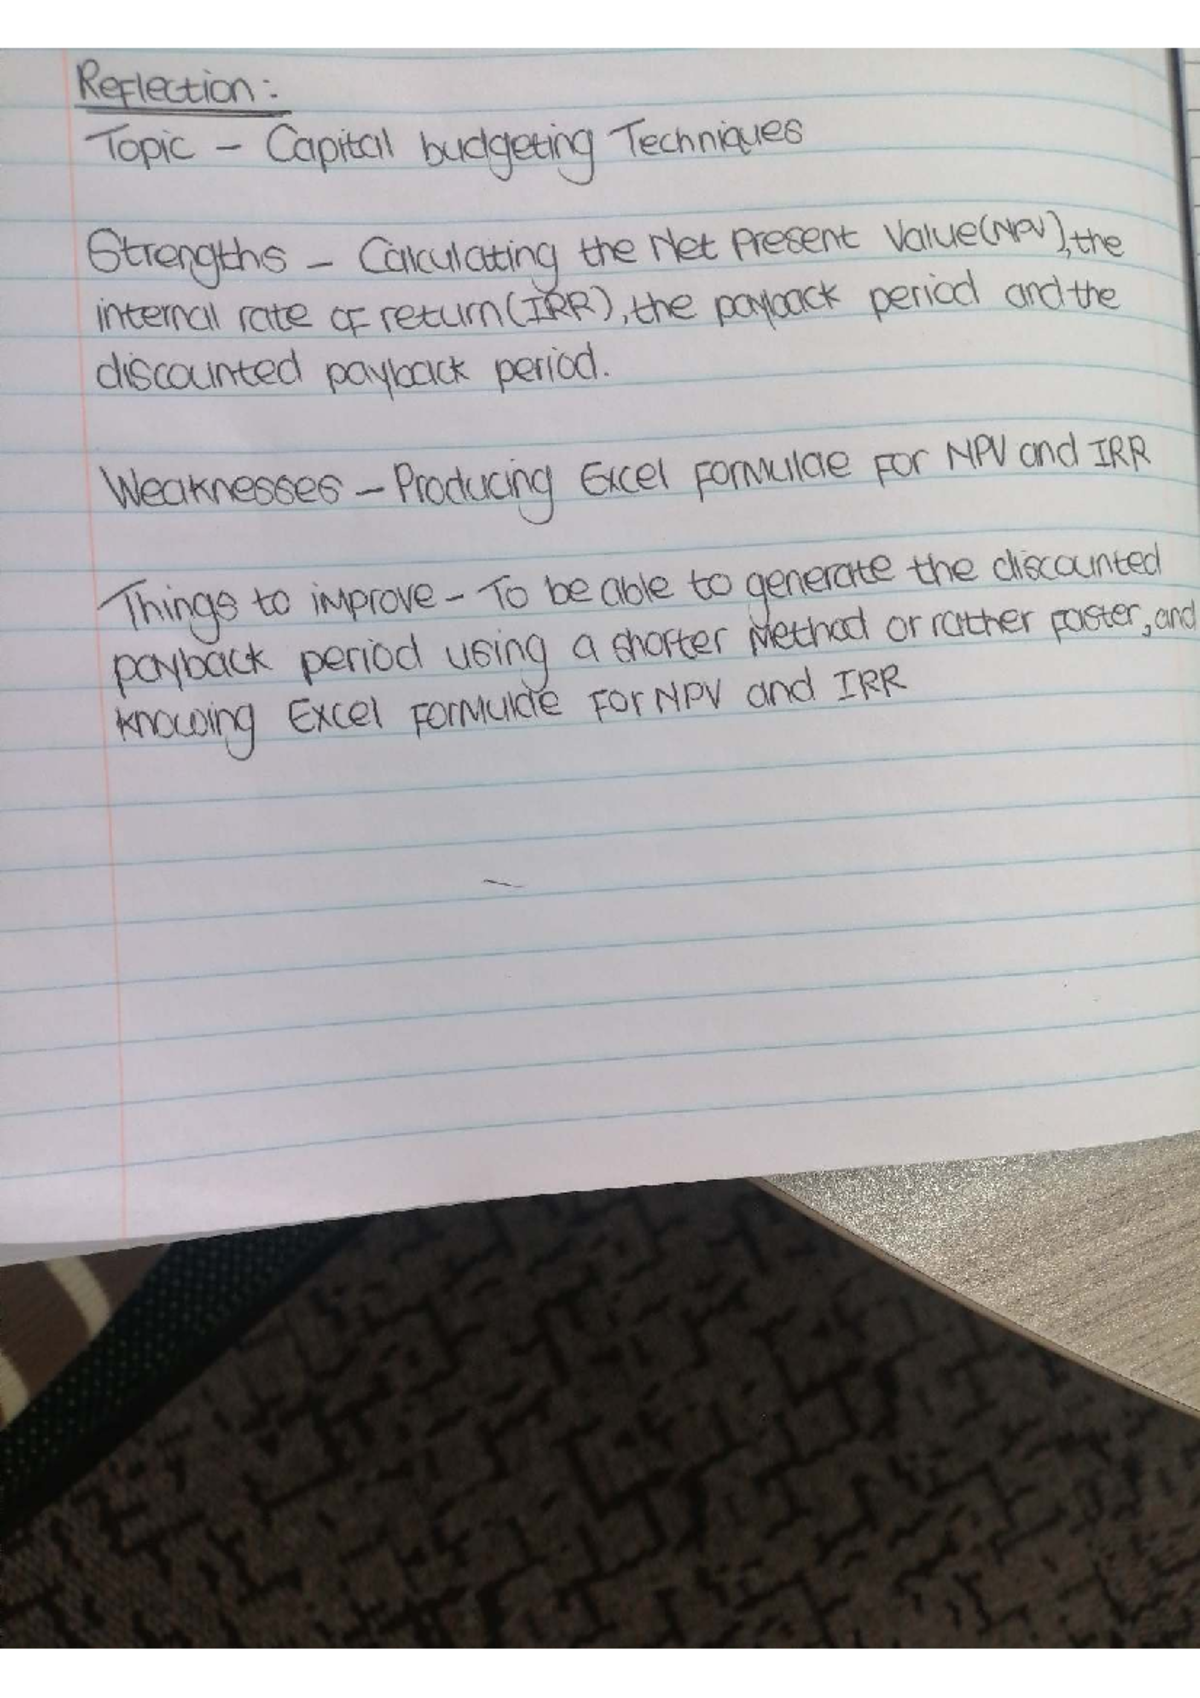 Reflection:
Topic - Capital budgeting Techniques
Strengths - Calculating the Net Present Value(NPV), the
internal rate of return(IRR), the payback period and the
discounted payback period.
Weaknesses - Producing Excel formulae for NPV and IRR
Things to improve - To be able to generate the discounted
payback period using a shorter method or rather faster, and
knowing Excel formulae for NPV and IRR